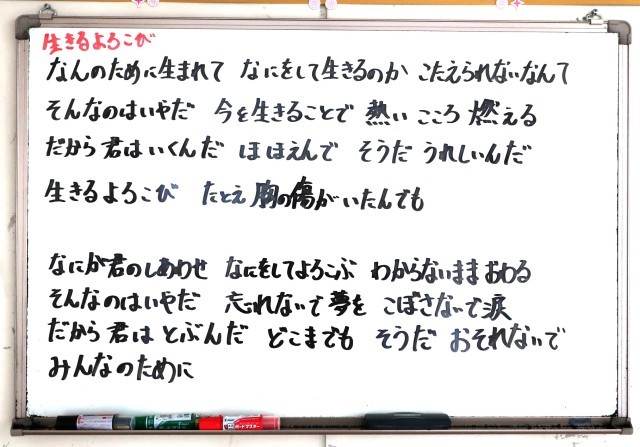 生きるよろこび
なんのために生まれて なにをして生きるのか こたえられないなんて
そんなのはいやだ 今を生きることで 熱い こころ 燃える
だから君はいくんだ ほほえんで そうだ うれしいんだ
生きるよろこび たとえ胸の傷がいたんでも
なにが君のしあわせ なにをしてよろこぶ わからないままおわる
そんなのはいやだ 忘れないで夢を こぼさないで涙
だから君はとぶんだ どこまでも そうだ おそれないで
みんなのために
ボードマスター